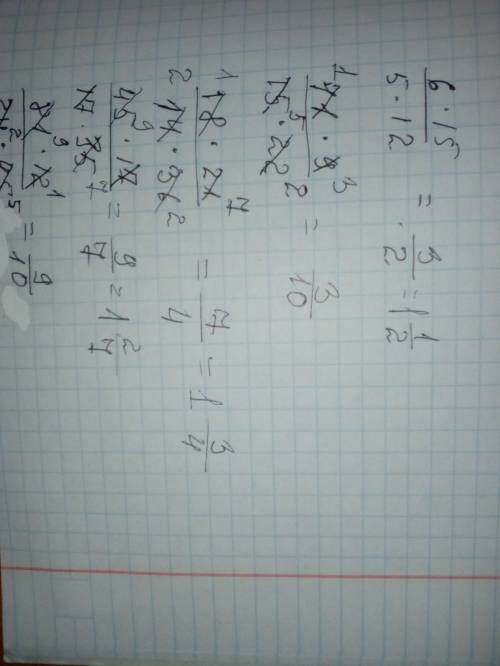 6·15 / 5·12 = 3/2 = 1 1/2
1 11 · 9 3 / 15 5 · 22 2 = 3/10
1 18 · 21 7 / 2 14 · 36 2 = 7/4 = 1 3/4
45 9 · 17 / 17 · 35 7 = 9/7 = 1 2/7
81 9 · 12 1 / 24 2 · 45 5 = 9/10